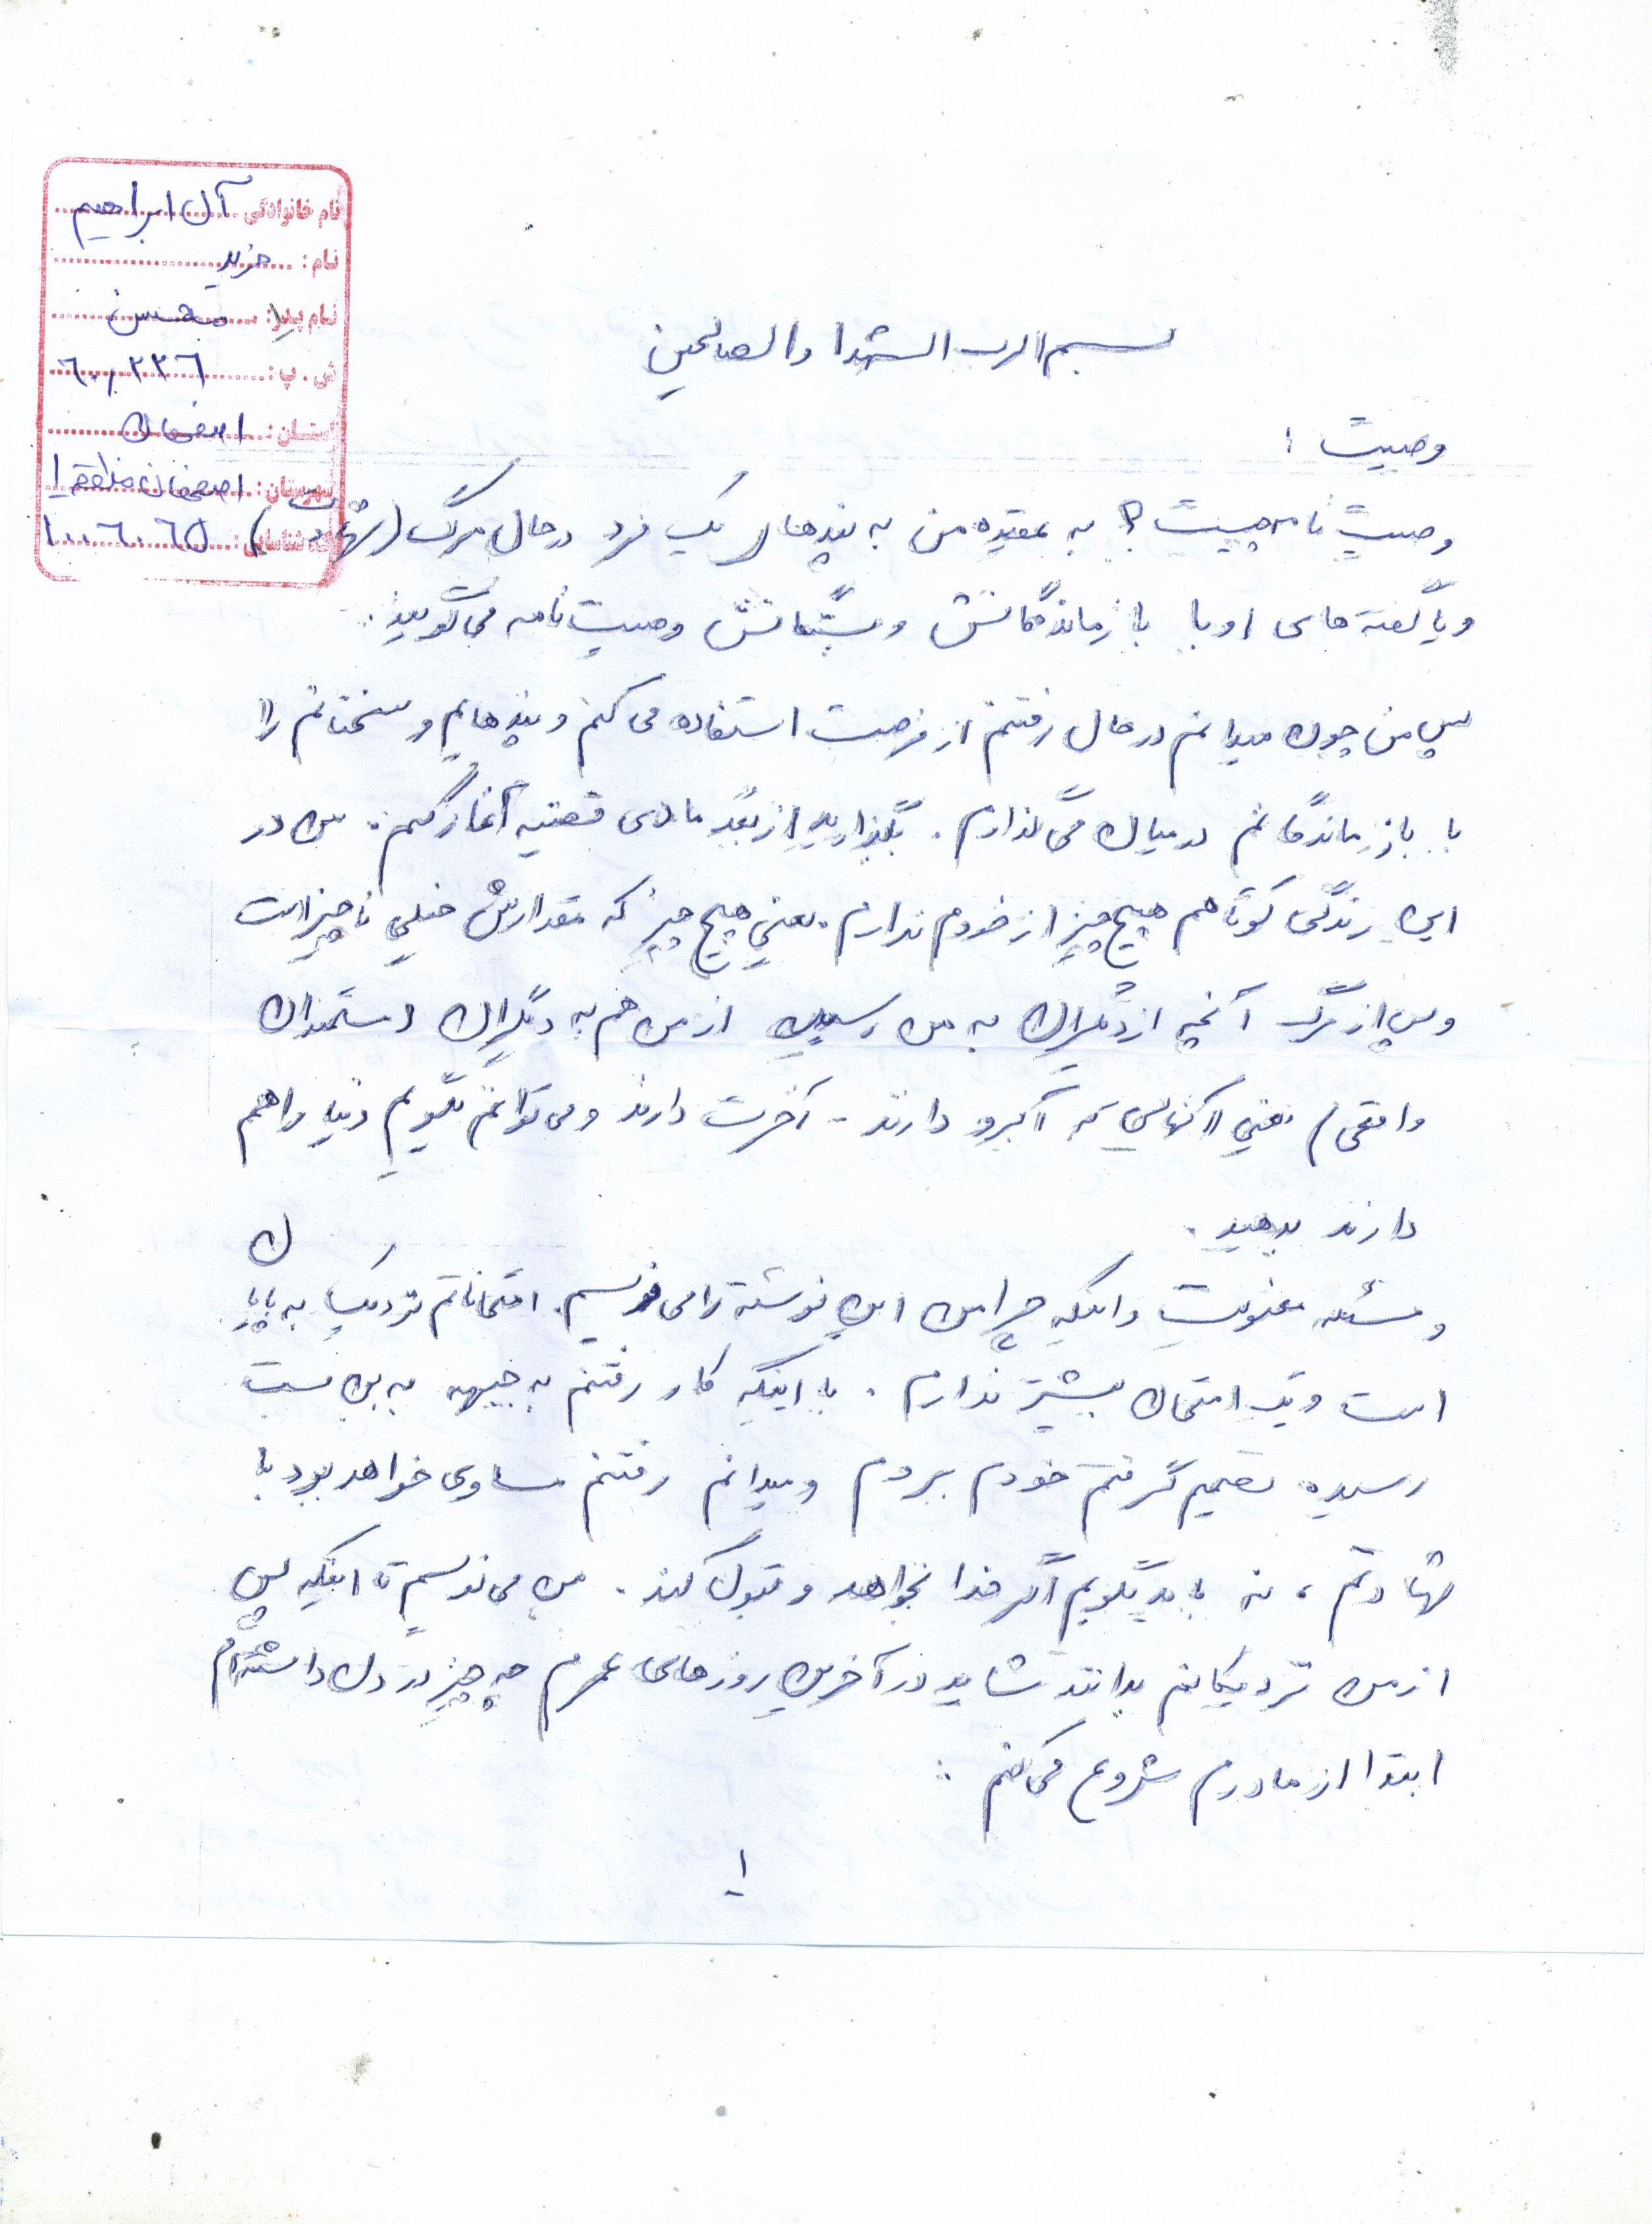 نام خانوادگی آل ابراهیم
نام : فرید
نام پدر : محسن
ش . پ : ٦٠/٣٣٦
استان : اصفهان
شهرستان : اصفهان منطقه ١
کد شناسائی : ١٠٠٦٠٦٥
بسم الرب الشهدا والصالحین
وصیت :
وصیت نامه چیست ؟ به عقیده من به پندهای یک فرد در حال مرگ (شهادت)
و یا گفته های او با بازماندگانش و بستگانش وصیت نامه می گویند .
پس من چون میدانم در حال رفتنم از فرصت استفاده می کنم و پندهایم و سخنانم را
با بازماندگانم در میان می گذارم . بگذارید از بعد مادی قضیه آغاز کنم . من در
این زندگی کوتاهم هیچ چیز از خودم ندارم . یعنی هیچ چیز که مقدارش خیلی ناچیز است
و پس از مرگ آنچه از دیگران به من رسیده از من هم به دیگران (مستمندان
واقعی) یعنی آنهایی که آبرو دارند - آخرت دارند و می توانم بگویم دنیا را هم
دارند بدهید .
و مسئله معنویت و اینکه چرا من این نوشته را می نویسم . امتحاناتم نزدیک به پایان
است و یک امتحان بیشتر ندارم . با اینکه کار رفتنم به جبهه به بن بست
رسیده تصمیم گرفتم خودم بروم و میدانم رفتنم مساوی خواهد بود با
شهادتم ، نه باید بگویم اگر خدا بخواهد و قبول کند . من می نویسم تا اینکه پس
از من نزدیکانم بدانند شاید در آخرین روزهای عمرم چه چیز در دل داشته ام
ابتدا از مادرم شروع می کنم :
١